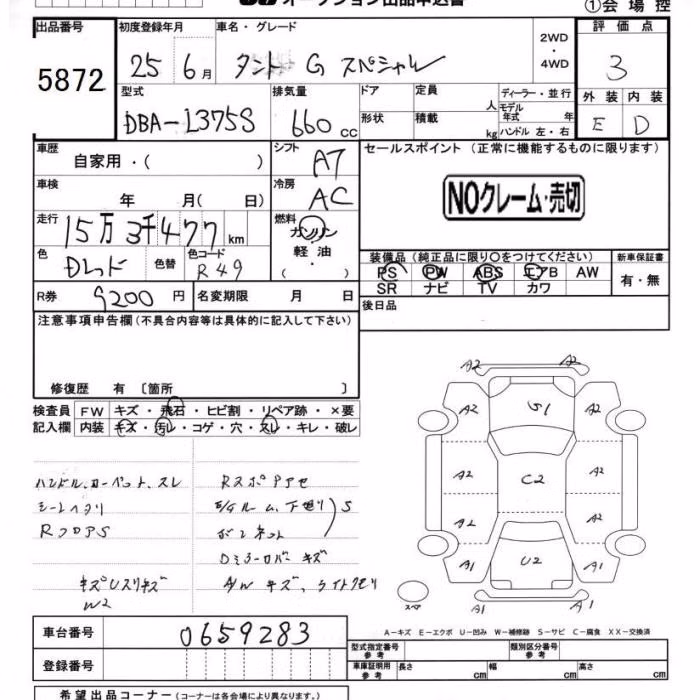 オークション出品申込書
①会場控
出品番号
5872
初度登録年月
25 6月
車名・グレード
タント G スペシャル
2WD
・
4WD
評価点
3
外装 内装
E D
型式
DBA-L375S
排気量
660cc
ドア
形状
定員
人
積載
kg
ディーラー・並行
モデル年式 年
ハンドル 左・右
車歴
自家用・( )
シフト
AT
車検
年 月( 日)
冷房
AC
走行
15万3千477km
燃料
ガソリン
軽油
・( )
色
Dレッド
色替
色コード
R49
R券
9200円
名変期限 月 日
セールスポイント(正常に機能するものに限ります)
NOクレーム・売切
装備品(純正品に限り○をつけてください)
PS PW ABS エアB AW
SR ナビ TV カワ
新車保証書
有・無
後日品
注意事項申告欄(不具合内容等は具体的に記入して下さい)
修復歴 有〔箇所 〕
検査員
記入欄
FW キズ・飛石・ヒビ割・リペア跡・×要
内装 キズ・汚レ・コゲ・穴・スレ・キレ・破レ
ハンドル、カーペット、スレ
シートヘタリ
RフロアS
キズUスリキズ
W2
Rスポアアセ
E/Gルーム、下廻り S
ボンネット
Dミラーカバーキズ
A/W キズ、ライトクモリ
A2 A2
A2 G1 A2
A2 C2 A2
A2 A2
A1 U2 A1
A1 A1
スペア
A-キズ E-エクボ U-凹み W-補修跡 S-サビ C-腐食 XX-交換済
車台番号
0659283
登録番号
型式指定番号
参考
類別区分番号
参考
車庫証明用
参考
長さ cm
幅 cm
高さ cm
希望出品コーナー(コーナーは各会場により異なります。)